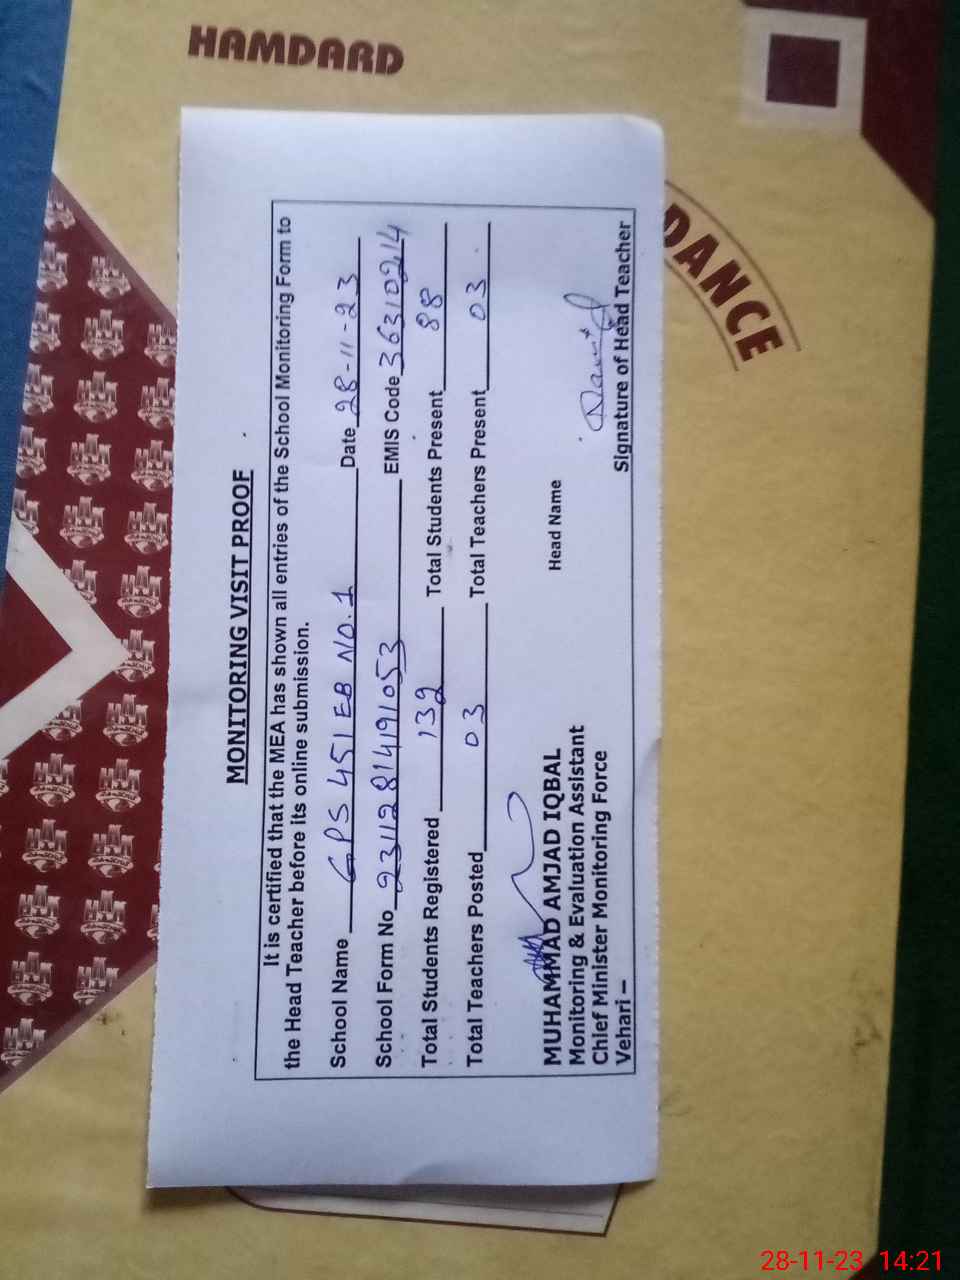 HAMDARD
DANCE
MONITORING VISIT PROOF
It is certified that the MEA has shown all entries of the School Monitoring Form to
the Head Teacher before its online submission.
School Name GPS 451 EB NO.1 Date 28-11-23
School Form No 23112814191053 EMIS Code 36310214
Total Students Registered 132 Total Students Present 88
Total Teachers Posted 03 Total Teachers Present 03
MUHAMMAD AMJAD IQBAL
Monitoring & Evaluation Assistant Head Name
Chief Minister Monitoring Force
Vehari – Signature of Head Teacher
28-11-23 14:21